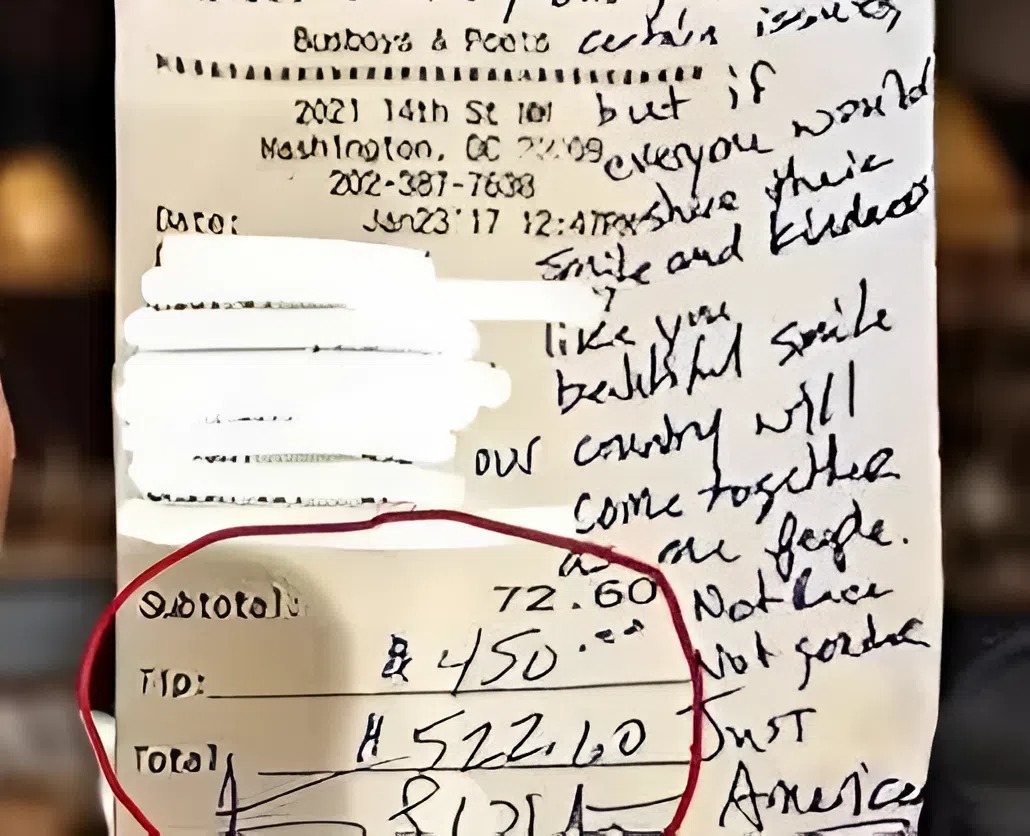 Busboys & Poets certain issues
2021 14th St 101 but if
Washington, DC everyone would
202-387-7638 share their
Date: Jan23'17 12:47PM
smile and kindness
like your
beautiful smile
our country will
come together
as one people.
Subtotal: 72.60 Not race
Tip: $ 450.00 Not gender
Total: $ 522.60 Just
America